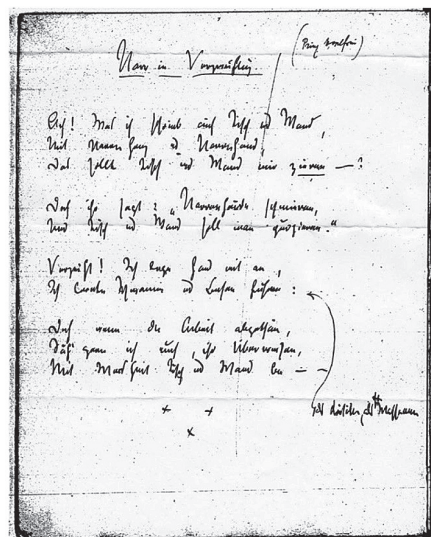 Narr in Verzweiflung.
(Prinz Vogelfrei)
Ach! Was ich schrieb auf Tisch und Wand,
Mit Narrenherz und Narrenhand
Das sollt Tisch und Wand mir zieren —?
Doch ihr sagt: „Narrenhände schmieren,
Und Tisch und Wand soll man purgieren."
Verzeiht! Ich lege Hand mit an,
Ich lernte Schwamm und Besen führen:
Doch wenn die Arbeit abgethan,
Säh' gern ich euch, ihr Überweisen,
Mit Weisheit Tisch und Wand be — —
als als Wassermann